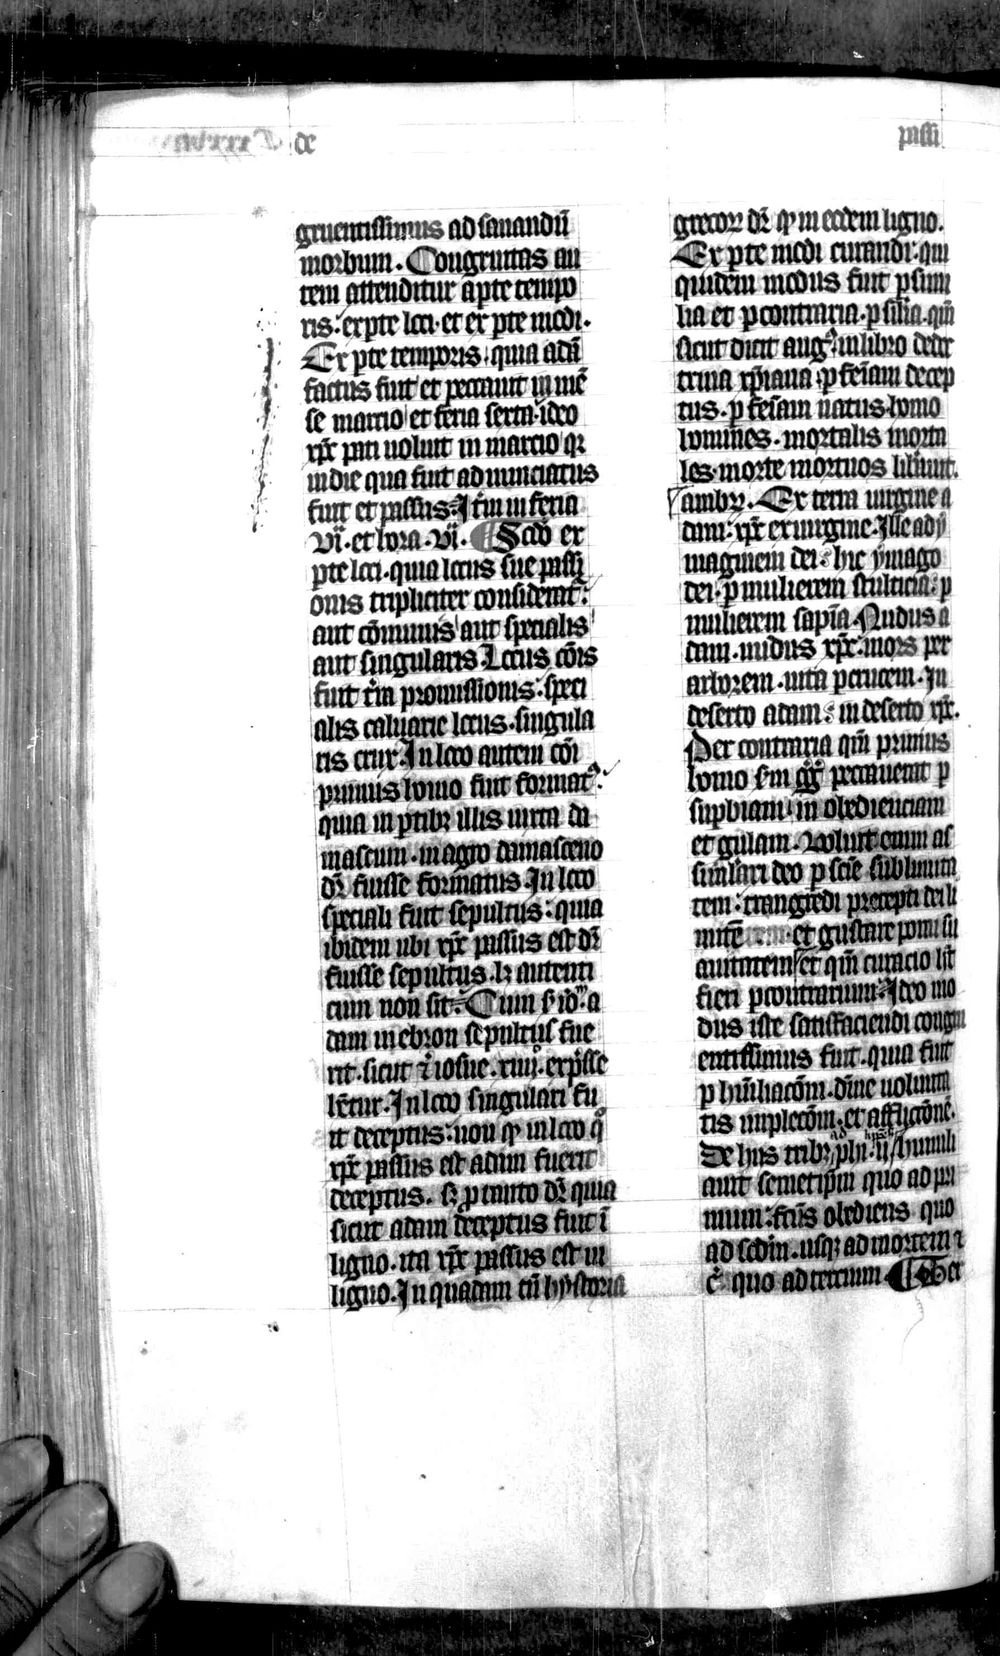 de
passi
gruentissimus ad sanandū
morbum. Congruitas au
tem attenditur a pte tempo
ris: ex pte loci. et ex pte modi.
Ex pte temporis. quia adā
factus fuit et peccauit in mē
se marcio et feria sexta. ideo
xp̄c pati uoluit in marcio qꝛ
in die qua fuit adnunciatus
fuit et passus. It̄m in feria
vi. et hora .vi. Scdo ex
pte loci. quia locus sue passi
onis tripliciter considerat᷑.
aut cōmunis aut specialis
aut singularis. Locus cōis
fuit t̄ra promissionis. speci
alis caluarie locus. singula
ris crux. In loco autem cōi
primus homo fuit formatꝰ.
quia in ptibꝫ illis iuxta da
mascum. in agro damasceno
dr̄ fuisse formatus. In loco
speciali fuit sepultus: quia
ibidem ubi xp̄c passus est dr̄
fuisse sepultus. lꝫ autenti
cum non sit. Cum a
dam in ebron sepultus fue
rit. sicut ī iosue .xiiij. exp̄sse
hētur. In loco singulari fu
it deceptus: non ꝙ in loco qͦ
xp̄c passus est adam fuerit
deceptus. sꝫ p tanto dr̄ quia
sicut adam deceptus fuit ī
ligno. ita xp̄c passus est in
ligno. In quadam tn̄ hystoria
grecoꝝ dr̄ ꝙ in eodem ligno.
Ex pte modi curandi. qui
quidem modus fuit p simi
lia et p contraria. p sil̄ia. qm̄
sicut dicit augꝰ. in libro de doc
trina xp̄iana. p feīam decep
tus. p feīam natus. homo
homines. mortalis morta
les. morte mortuos lib̄auit.
ambꝛ. Ex terra uirgine a
dam: xp̄c ex uirgine. Ille ad y
maginem dei: hic ymago
dei. p mulierem stulticia: p
mulierem sapīa. Nudus a
dam. nudus xp̄c. mors per
arborem. uita p crucem. In
deserto adam: in deserto xp̄c.
Per contraria qm̄ primus
homo peccauerat p
supbiam. in obedienciam
et gulam. Voluit enim as
similari deo p scīe sublimita
tem: trangredi precepti dei li
mitē et gustare pomi su
auitatem et qm̄ curacio h̄t
fieri p contrarium. Ideo mo
dus iste satisfaciendi congru
entissimus fuit. quia fuit
p humiliacōm. diuīe uolunta
tis implecōm. et afflictōnē.
De hijs tribꝫ ad phil. ii. humili
auit semetip̄m quo ad pri
mum. fcūs obediens quo
ad scdm. usqꝫ ad mortem ⁊
c̄. quo ad tercium